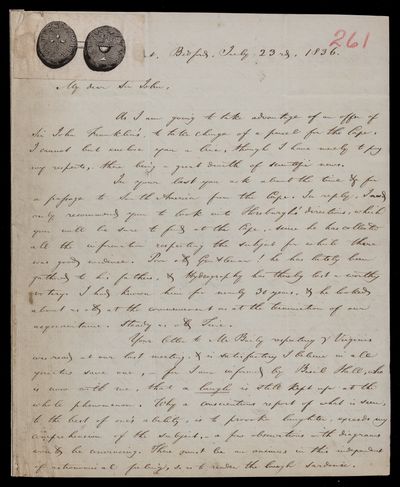 261
Bedford, July 23rd, 1836.
My dear Sir John,
As I am going to take advantage of an offer of
Sir John Franklin's, to take charge of a parcel for the Cape,
I cannot but enclose you a line, though I have merely to pay
my respects, there being a great dearth of scientific news.
In your last you ask about the time & for
a passage to South America from the Cape. In reply, I need
only recommend you to look into Horsburgh's directions, which
you will be sure to find at the Cape, since he has collected
all the information respecting the subject for which there
was good evidence. Poor old Gentleman! he has lately been
gathered to his fathers, & Hydrography has thereby lost a worthy
votary. I had known him for nearly 30 years, & he looked
about as old at the commencement as at the termination of our
acquaintance. Steady as old Time.
Your letter to Mr Baily respecting γ Virginis
was read at our last meeting, & is satisfactory I believe in all
quarters save one, – for I am informed by Basil Hall, who
is now with me, that a laugh is still kept up at the
whole phenomenon. Why a conscientious report of what is seen,
to the best of one's ability, is to provoke laughter, exceeds my
comprehension of the subject, – a few observations with diagrams
would be convincing. There must be an animus in this independent
of astronomical feeling, so as to render the laugh sardonic.